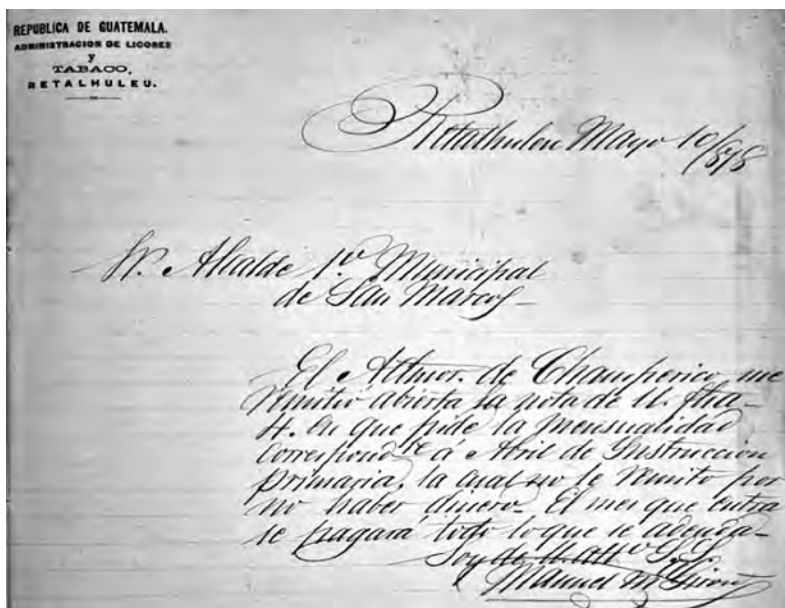 REPUBLICA DE GUATEMALA.
ADMINISTRACION DE LICORES
y
TABACO,
RETALHULEU.
Retalhuleu Mayo 10/878
Sr. Alcalde 1.º Municipal
de San Marcos
El Admor. de Champerico me
remitio abierta la nota de U. fha
4. en que pide la mensualidad
correspond.te á Abril de Instruccion
primaria, la cual no le remito por
no haber dinero. El mes que entra
se pagará todo lo que se adeuda
Soy de U. att.º
Manuel M. Giron